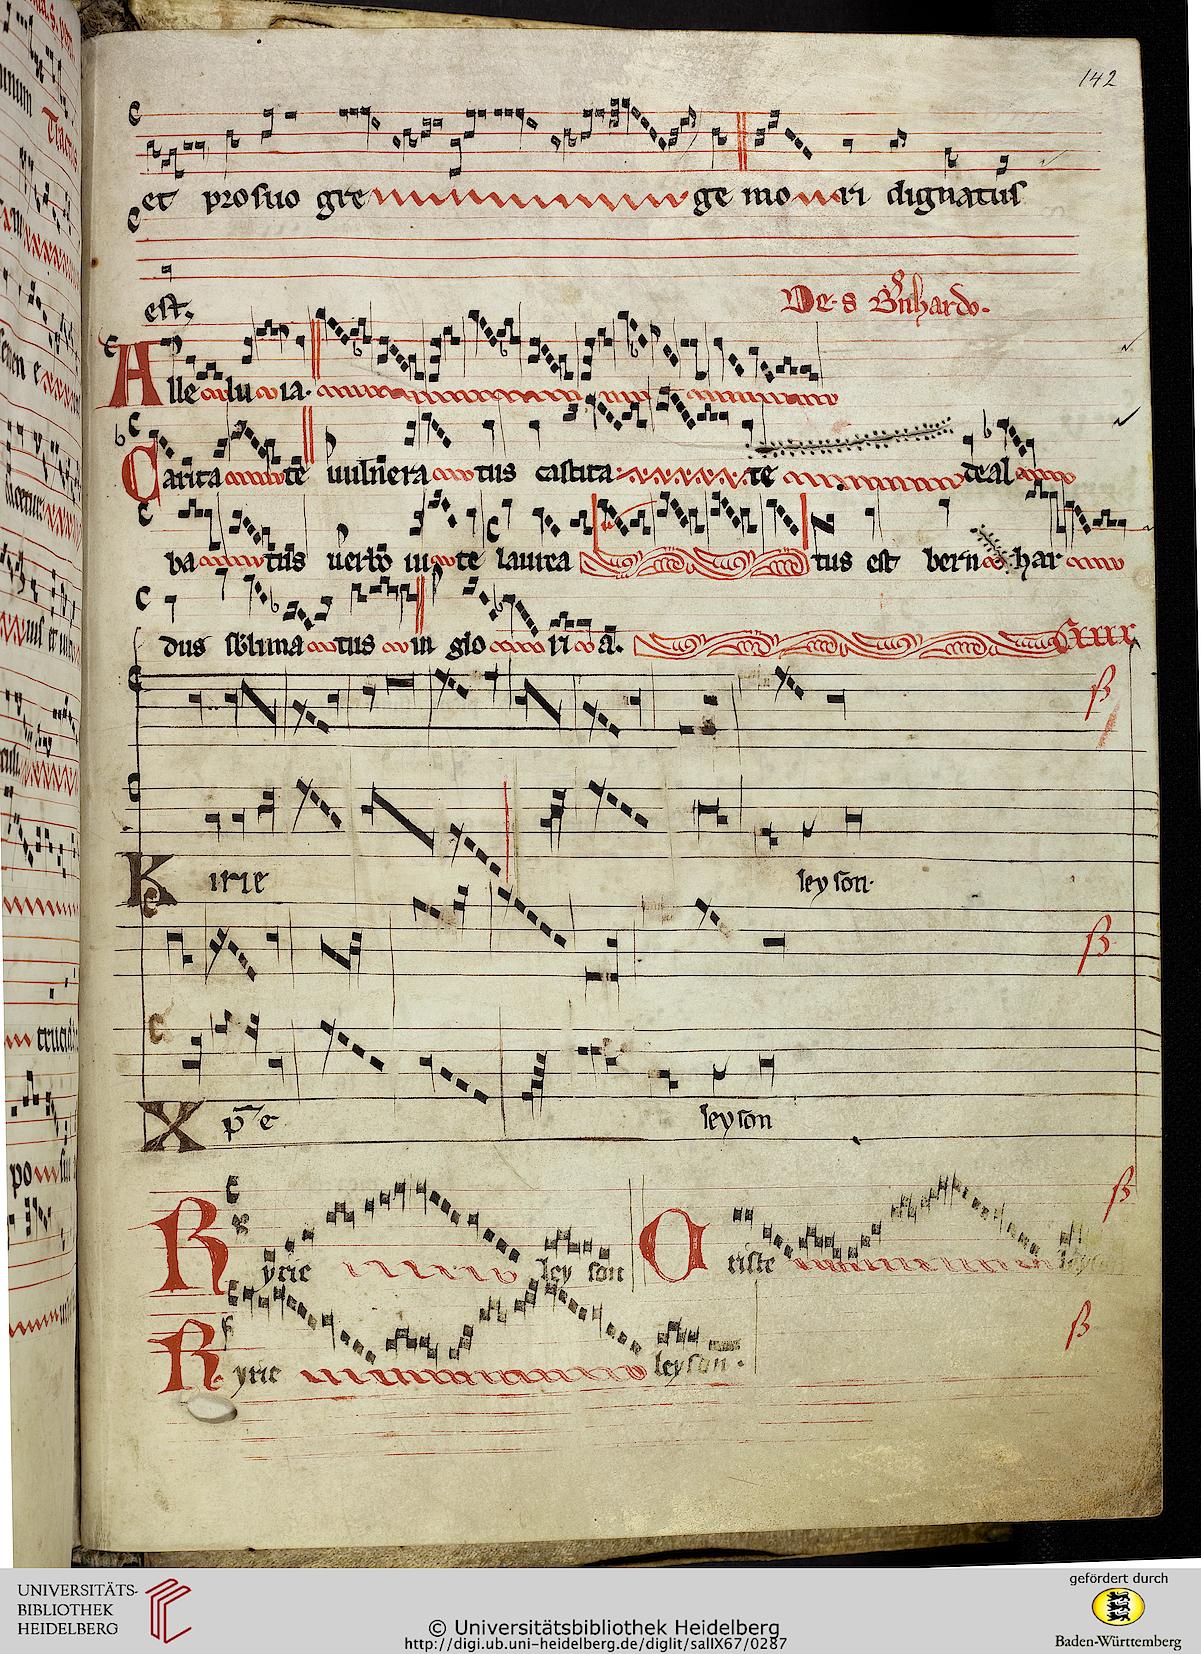 142
et pro suo gre ge mo ri dignatus
est.
De s Bnhardo.
Alle lu ia.
Carita te vulnera tus castita te deal
ba tus verbo iu te laurea tus est bern har
dus sblima tus in glo ri a.
Kirie leyson.
Xpe leyson
Kyrie ley son Criste
Kyrie leyson.
UNIVERSITÄTS-
BIBLIOTHEK
HEIDELBERG
© Universitätsbibliothek Heidelberg
http://digi.ub.uni-heidelberg.de/diglit/salIX67/0287
gefördert durch
Baden-Württemberg